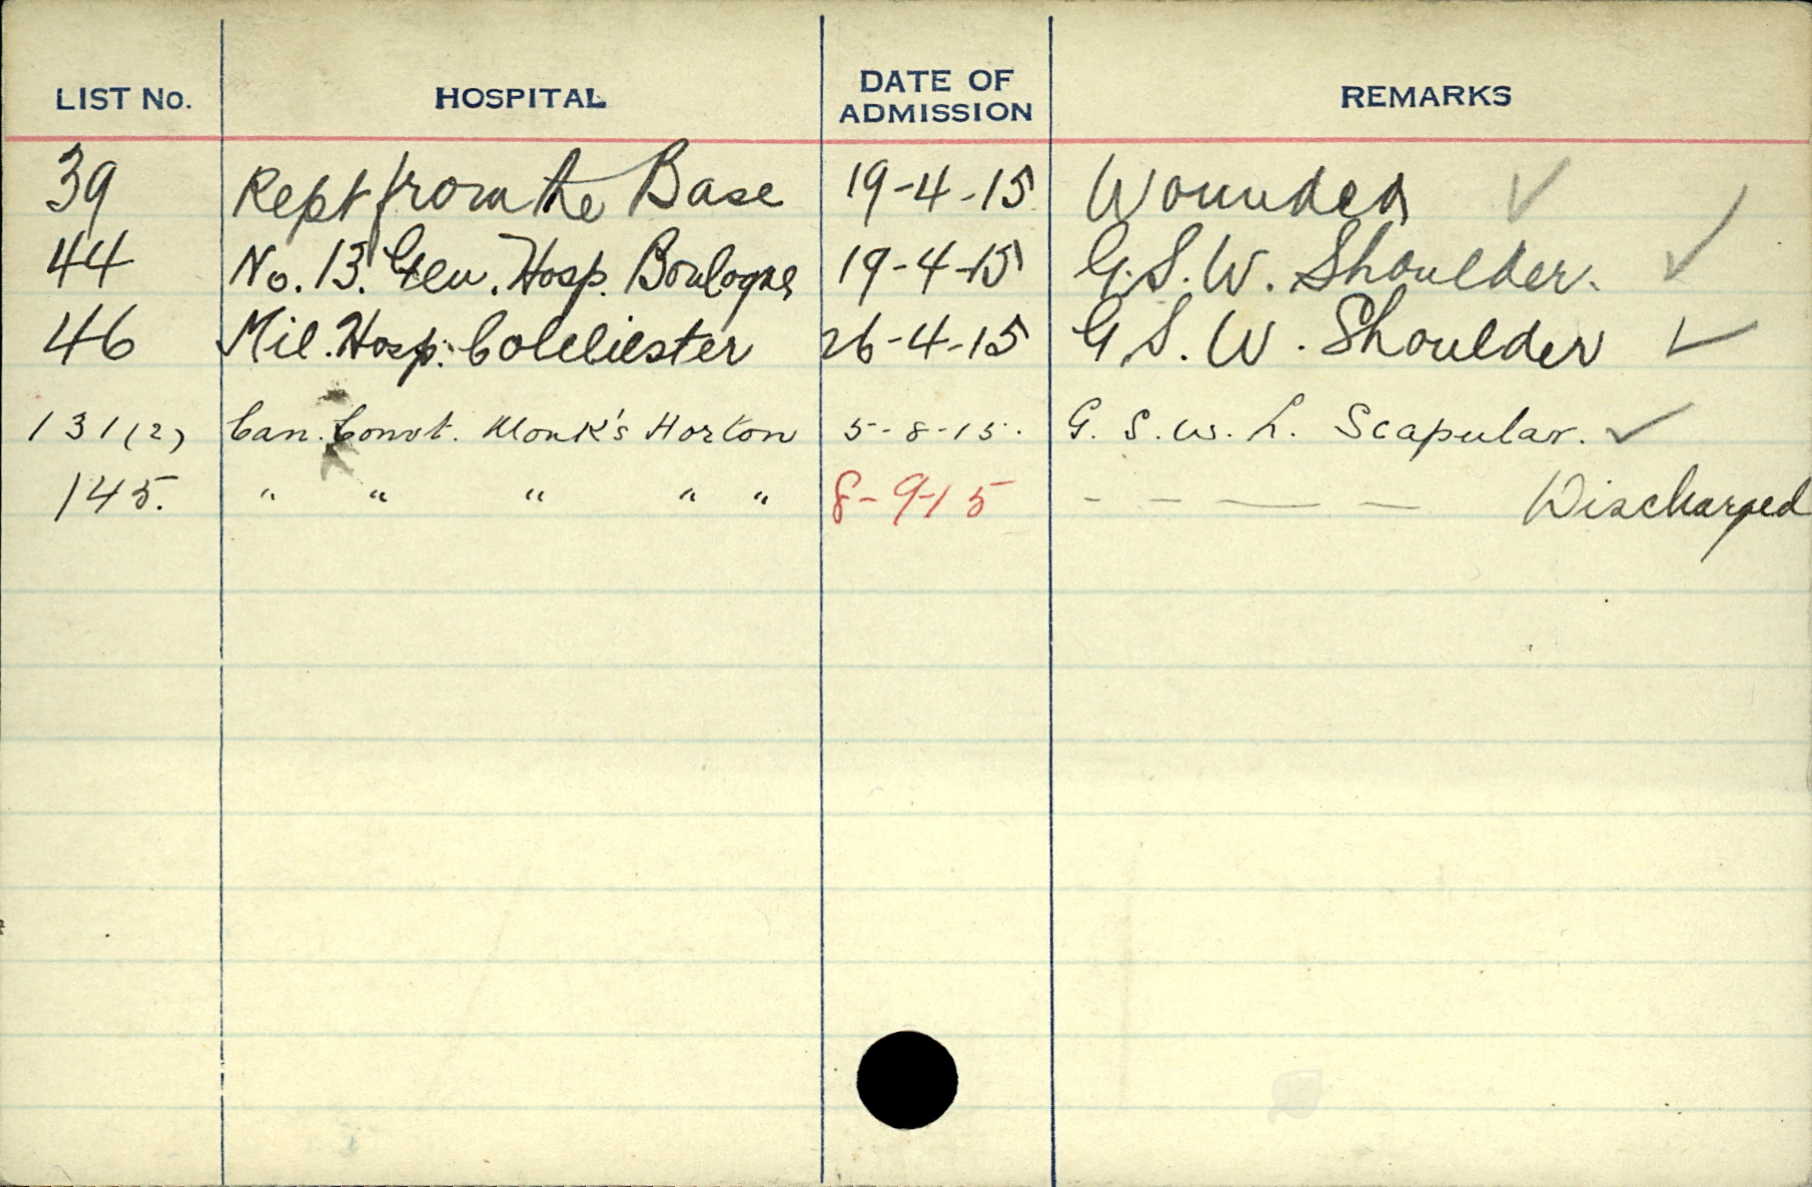 LIST No. HOSPITAL DATE OF ADMISSION REMARKS
39 Rept from the Base 19-4-15 Wounded ✓
44 No. 13. Gen. Hosp. Boulogne 19-4-15 G.S.W. Shoulder. ✓
46 Mil. Hosp. Colchester 26-4-15 G.S.W. Shoulder ✓
131(2) Can. Convt. Monk's Horton 5-8-15. G.S.W. L. Scapular. ✓
145. " " " " " 8-9-15 - - — — Discharged